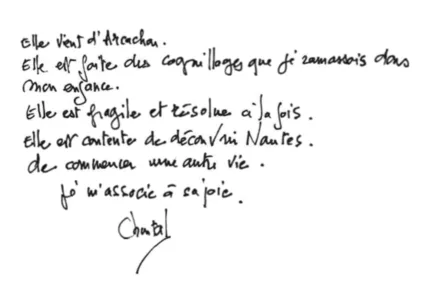 Elle vient d'Arcachon.
Elle est faite des coquillages que je ramassais dans
mon enfance.
Elle est fragile et résolue à la fois.
Elle est contente de découvrir Nantes.
de commencer une autre vie.
Je m'associe à sa joie.
Chantal